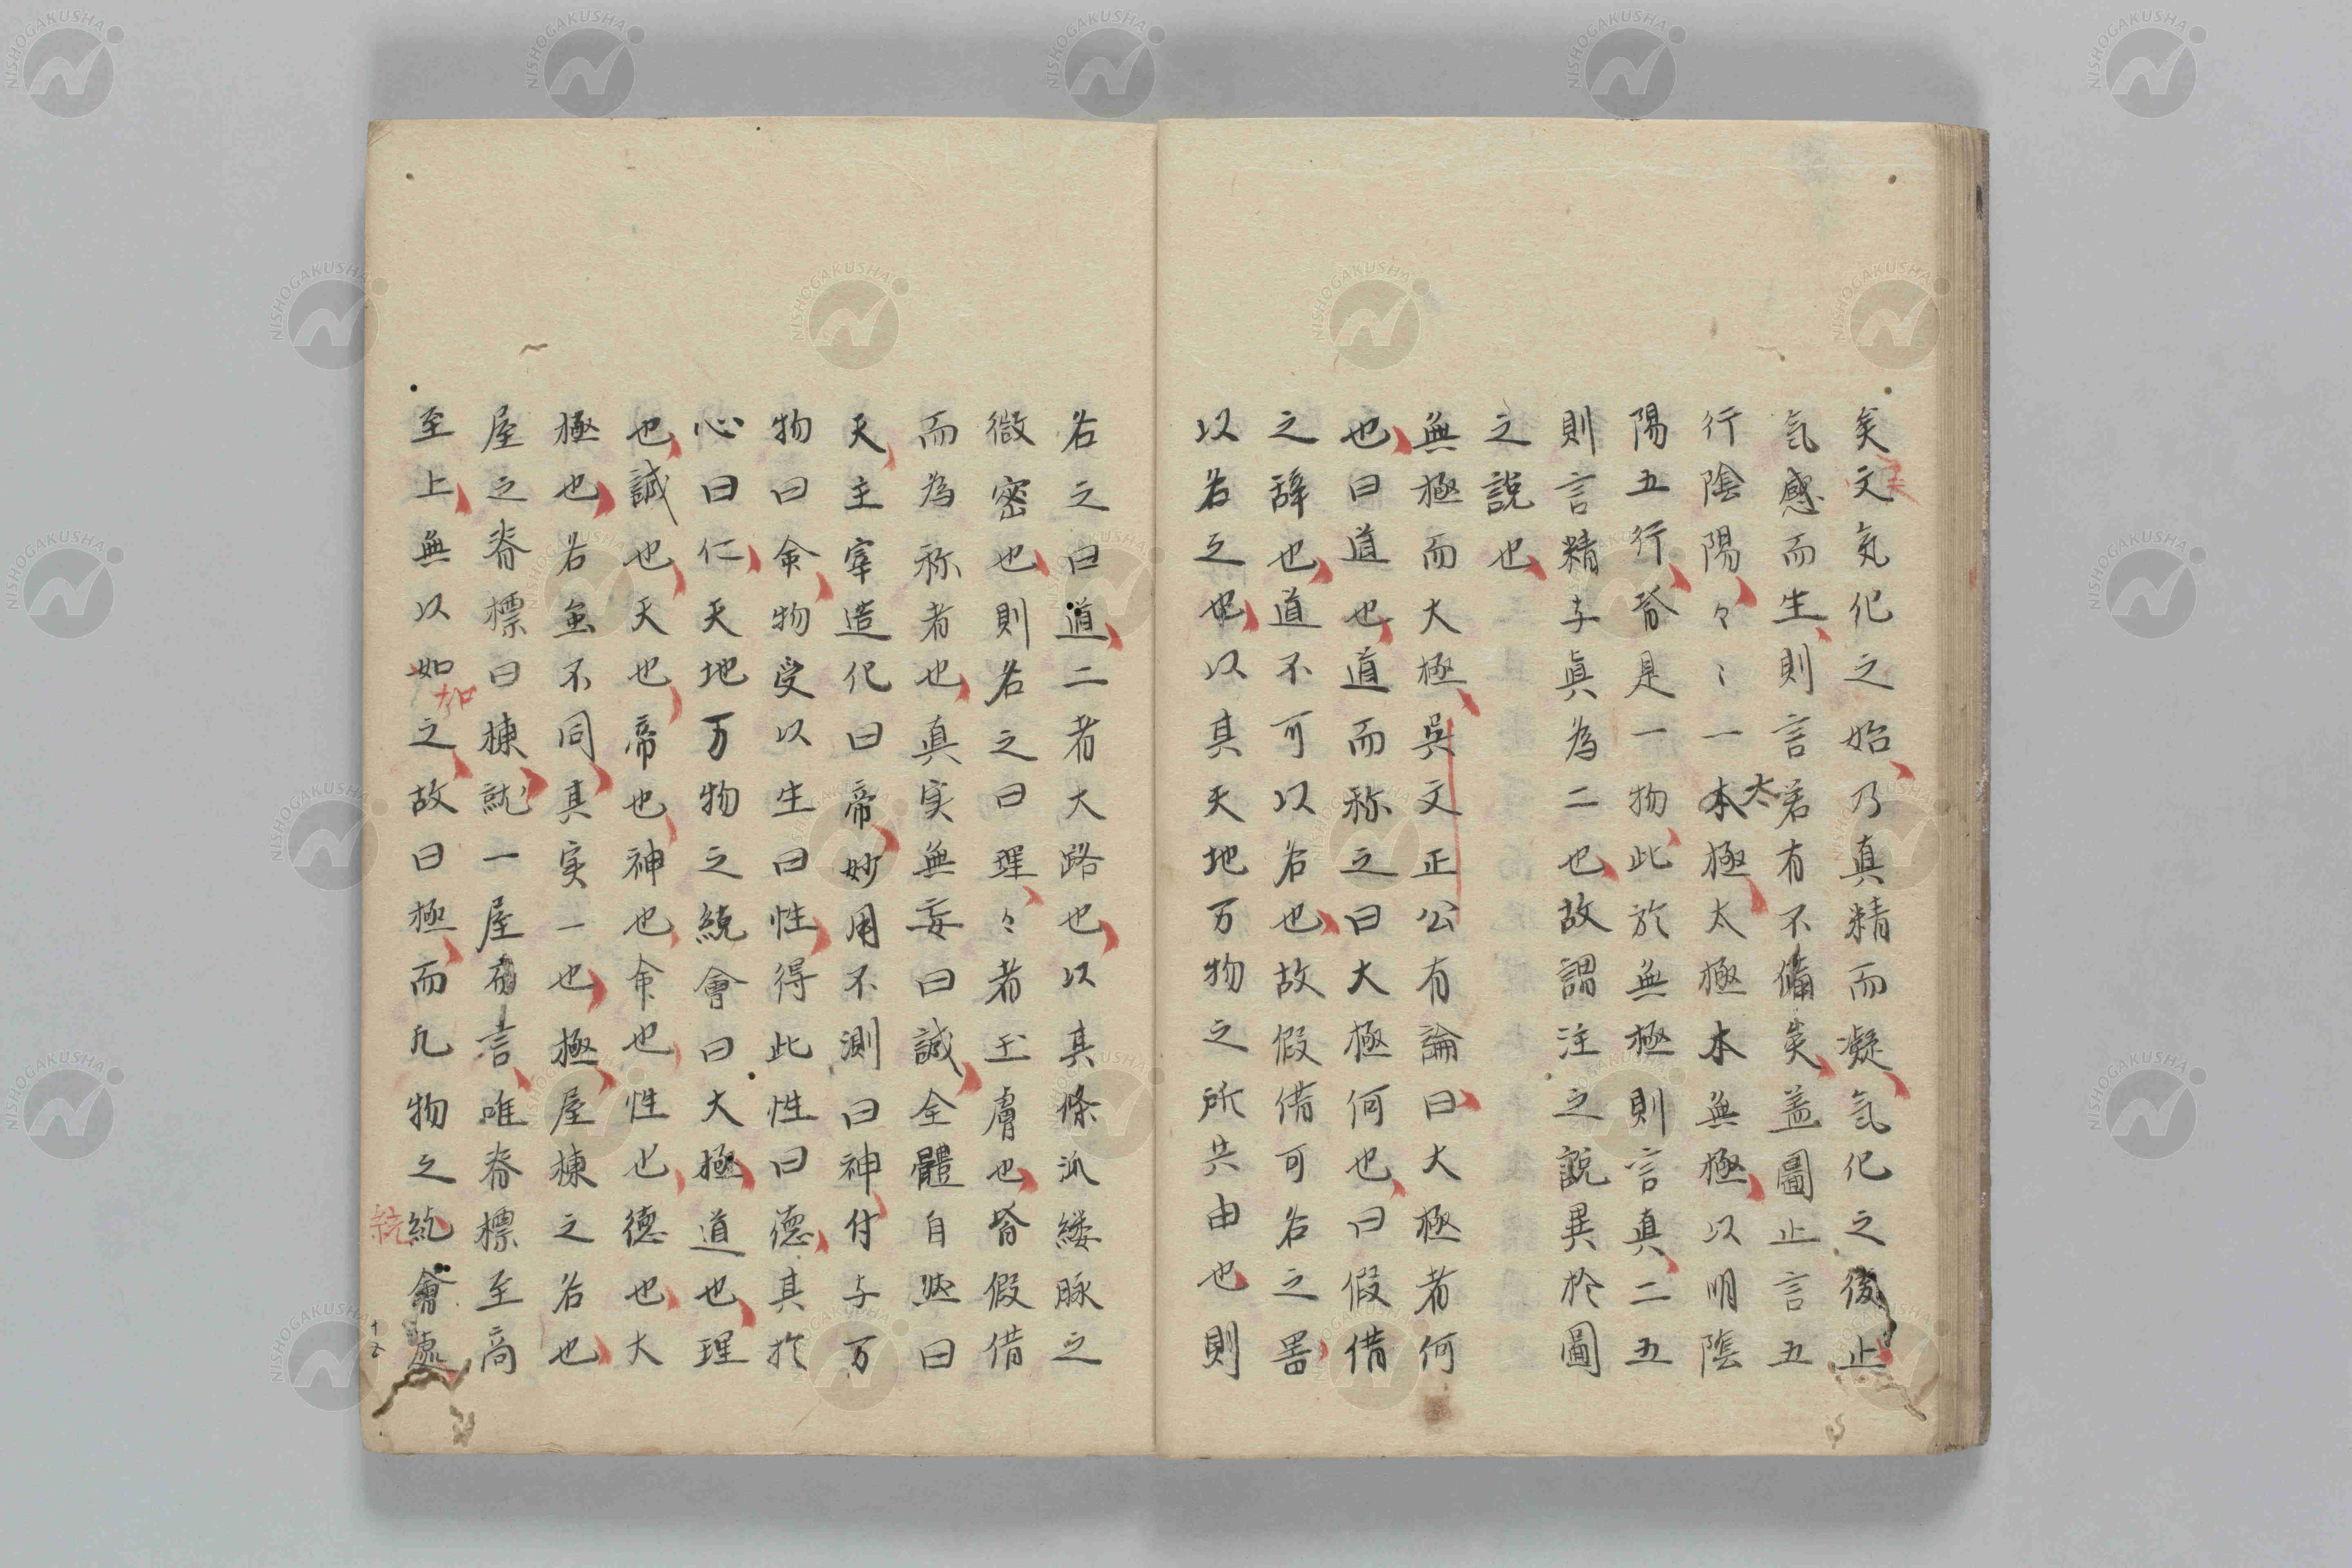 矣文気化之始乃真精而凝氣化之後止
氣感而生則言若有不備矣盖圖止言五
行陰陽々〻一本極太極本無極以明陰
太
陽五行昚是一物此於無極則言真二五
則言精与眞為二也故謂注之説異於圖
之説也
無極而大極吳文正公有論曰大極者何
也曰道也道而称之曰大極何也曰假借
之辞也道不可以名也故假借可名之噐
以名之也以其天地万物之所共由也則
名之曰道二者大路也以其條派縷脉之
微密也則名之曰理々者玉膚也皆假借
而為称者也真実無妄曰誠全體自然曰
天主宰造化曰帝妙用不測曰神付与万
物曰命物受以生曰性得此性曰德其於
心曰仁天地万物之統會曰大極道也理
也誠也天也帝也神也命也性也德也大
極也名虽不同其実一也極屋棟之名也
屋之脊標曰棟就一屋而言唯脊標至高
至上無以如之故曰極而凢物之統會處
加
統
十五
NISHOGAKUSHA